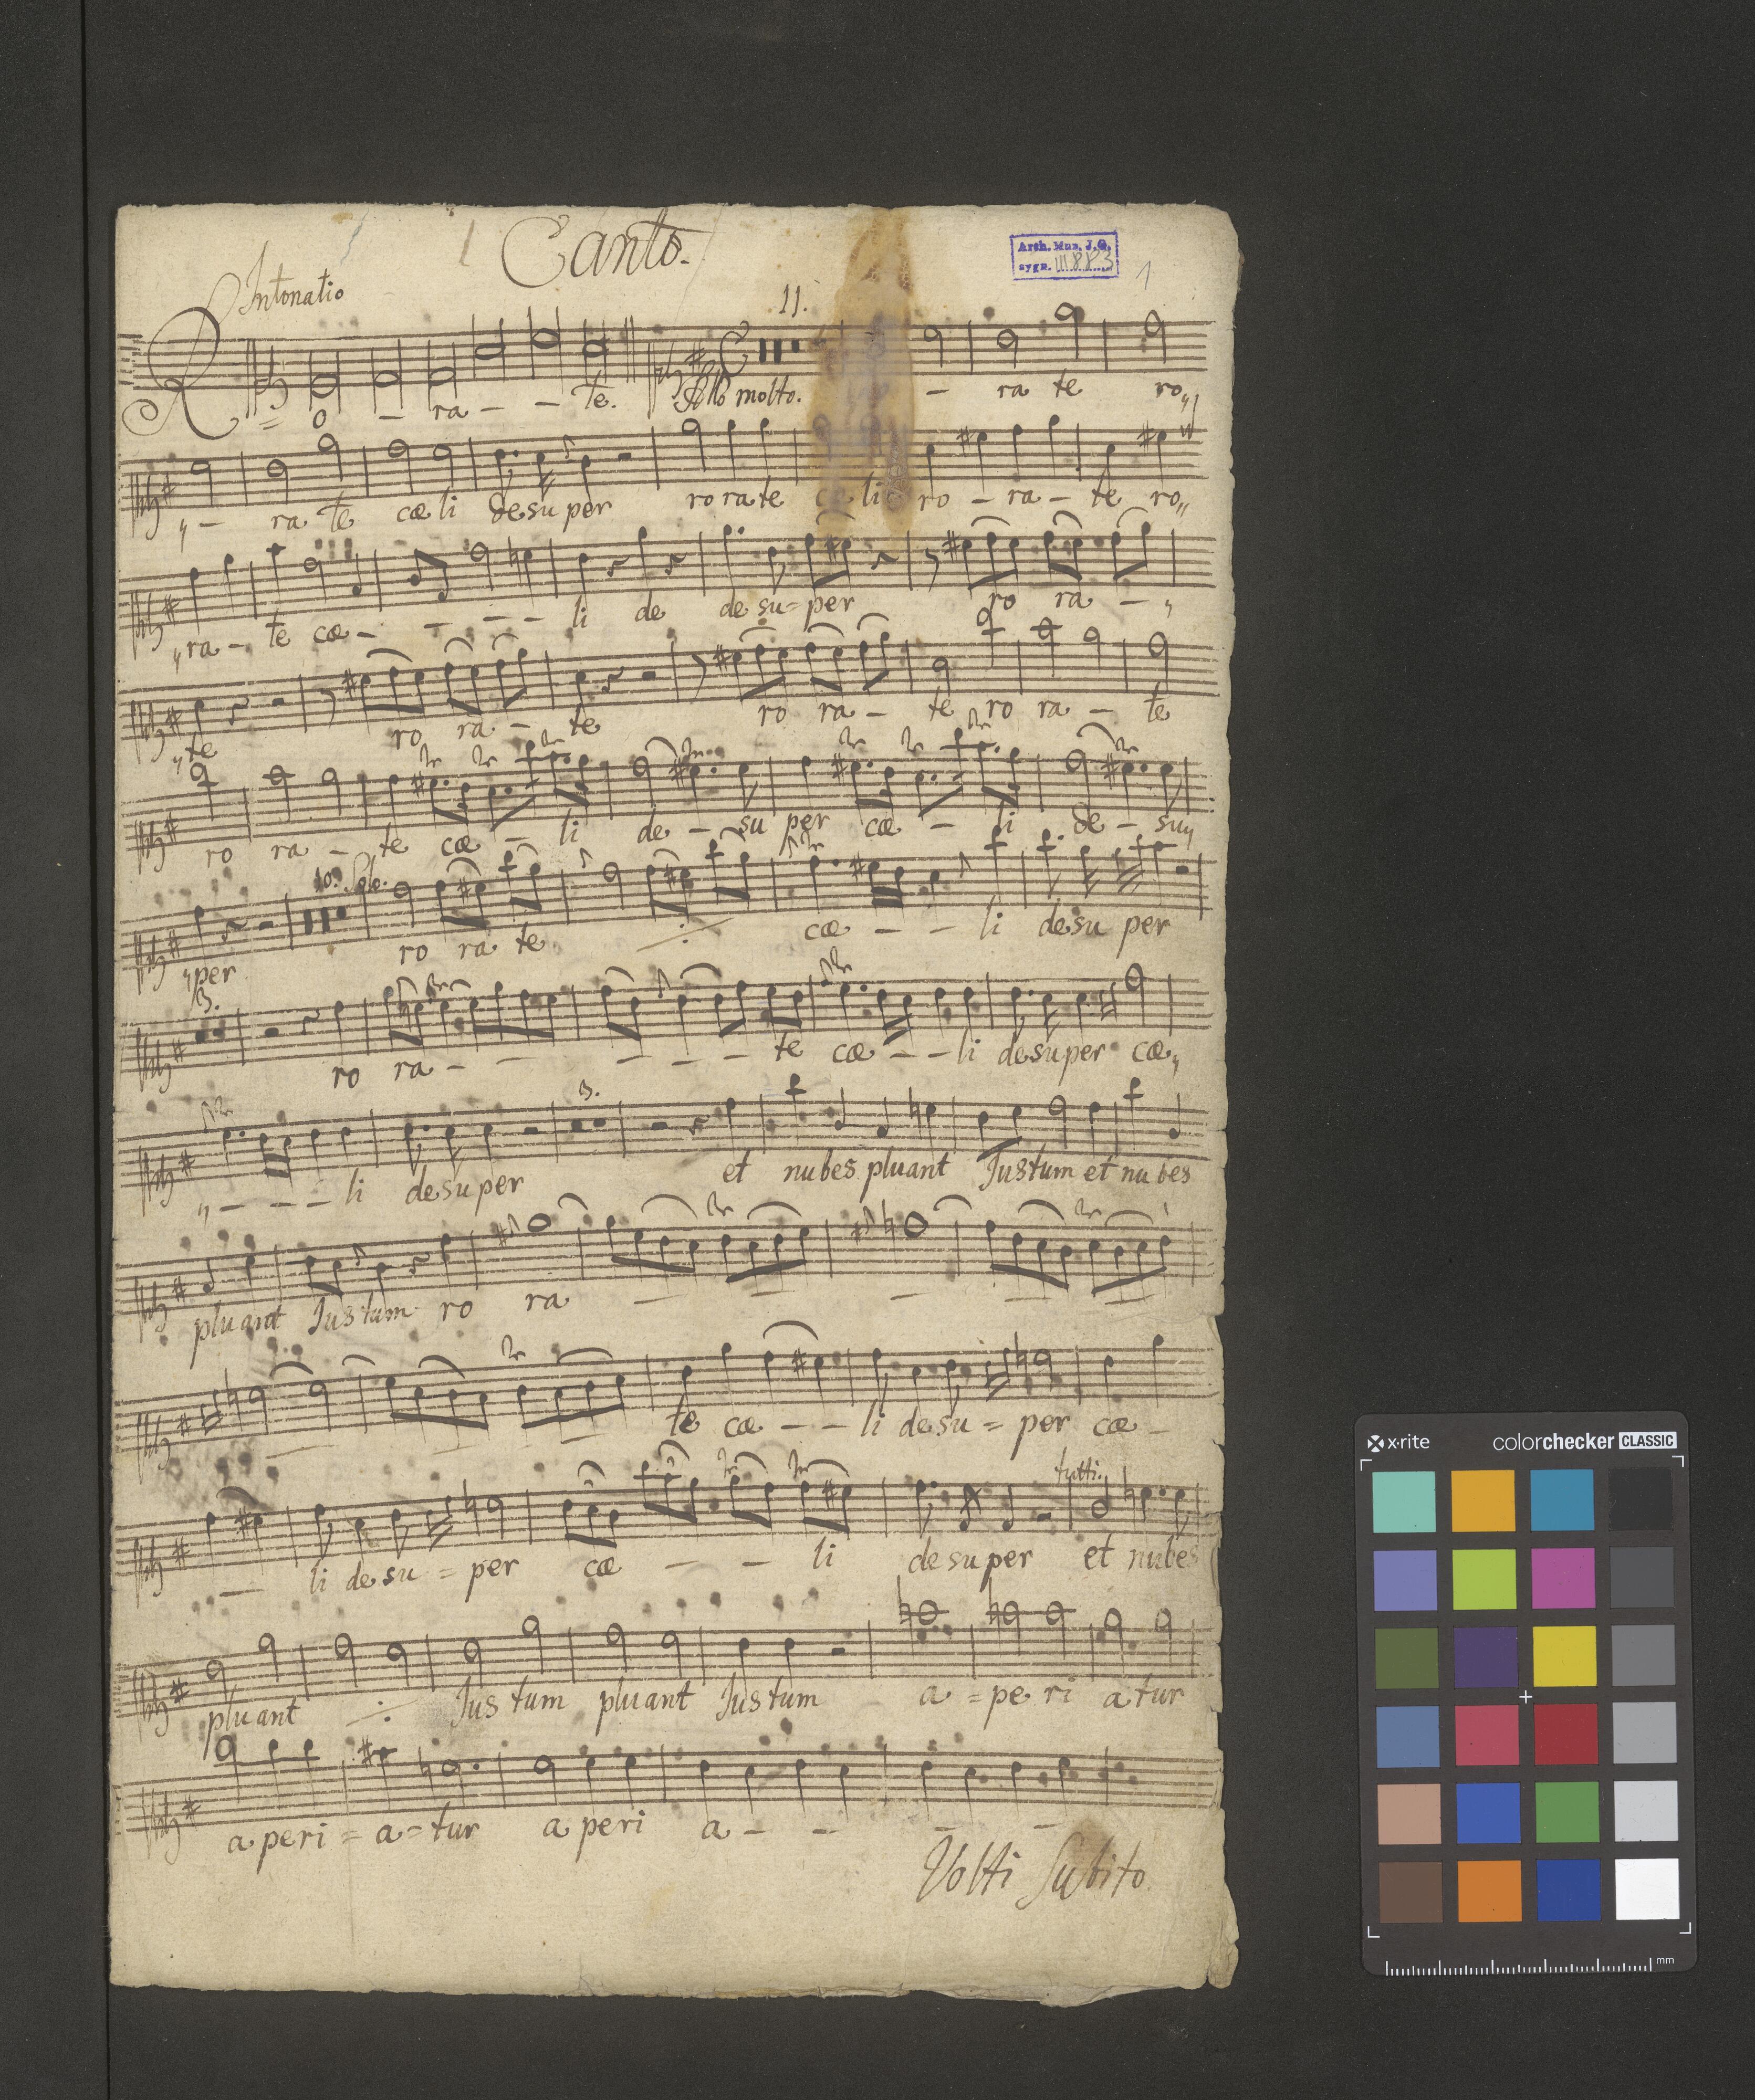 Canto.
Arch. Muz. J.G.
sygn. III 883
1
Intonatio
11.
R = o - ra - - te. Allo molto. - ra te ro
- ra te cæli desuper rorate cæli ro - ra - te ro
ra - te cæ - - - - li de desu=per ro ra -
te ro ra - te ro ra - te ro ra - te
ro ra - te cæ - li de - su per cæ - li de - su
10. Solo.
per ro ra te ·/· cæ - - li desu per
3.
ro ra - - - - - te cæ - - li desuper cæ
3.
- - - li desuper et nubes pluant Justum et nubes
pluant Justum ro ra - - - - -
- - - te cæ - - li desu = per cæ -
tutti.
- li desu = per cæ - - li desuper et nubes
pluant ·/· Justum pluant Justum a = pe ri a tur
a peri = a = tur a peri a - - - -
Volti Subito
x·rite colorchecker CLASSIC
mm